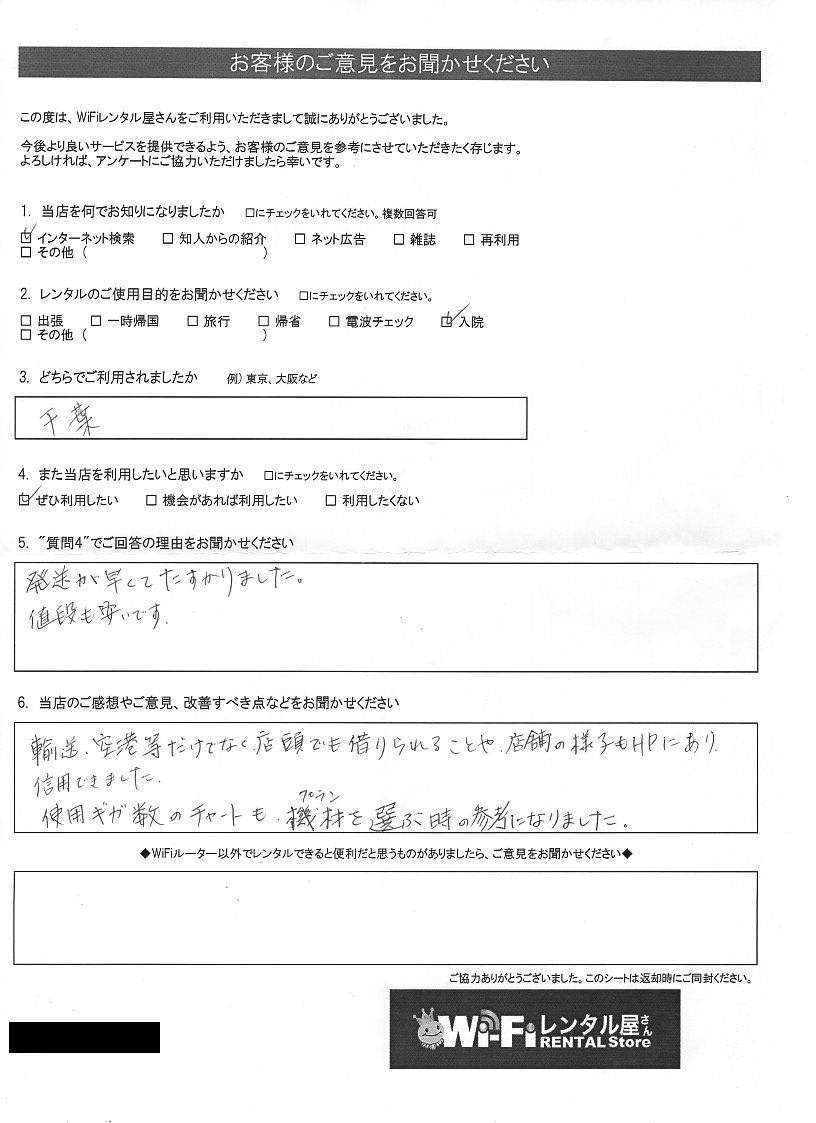 お客様のご意見をお聞かせください
この度は、WiFiレンタル屋さんをご利用いただきまして誠にありがとうございました。
今後より良いサービスを提供できるよう、お客様のご意見を参考にさせていただきたく存じます。
よろしければ、アンケートにご協力いただけましたら幸いです。
1. 当店を何でお知りになりましたか □にチェックをいれてください。複数回答可
☑ インターネット検索 □ 知人からの紹介 □ ネット広告 □ 雑誌 □ 再利用
□ その他 ( )
2. レンタルのご使用目的をお聞かせください □にチェックをいれてください。
□ 出張 □ 一時帰国 □ 旅行 □ 帰省 □ 電波チェック ☑ 入院
□ その他 ( )
3. どちらでご利用されましたか 例) 東京、大阪など
千葉
4. また当店を利用したいと思いますか □にチェックをいれてください。
☑ ぜひ利用したい □ 機会があれば利用したい □ 利用したくない
5. "質問4"でご回答の理由をお聞かせください
発送が早くてたすかりました。
値段も安いです.
6. 当店のご感想やご意見、改善すべき点などをお聞かせください
輸送、空港等だけでなく、店頭でも借りられることや、店舗の様子もHPにあり
信用できました.
使用ギガ数のチャートも、機材を選ぶ時の参考になりました。
プラン
◆WiFiルーター以外でレンタルできると便利だと思うものがありましたら、ご意見をお聞かせください◆
ご協力ありがとうございました。このシートは返却時にご同封ください。
Wi-Fiレンタル屋さん
RENTAL Store